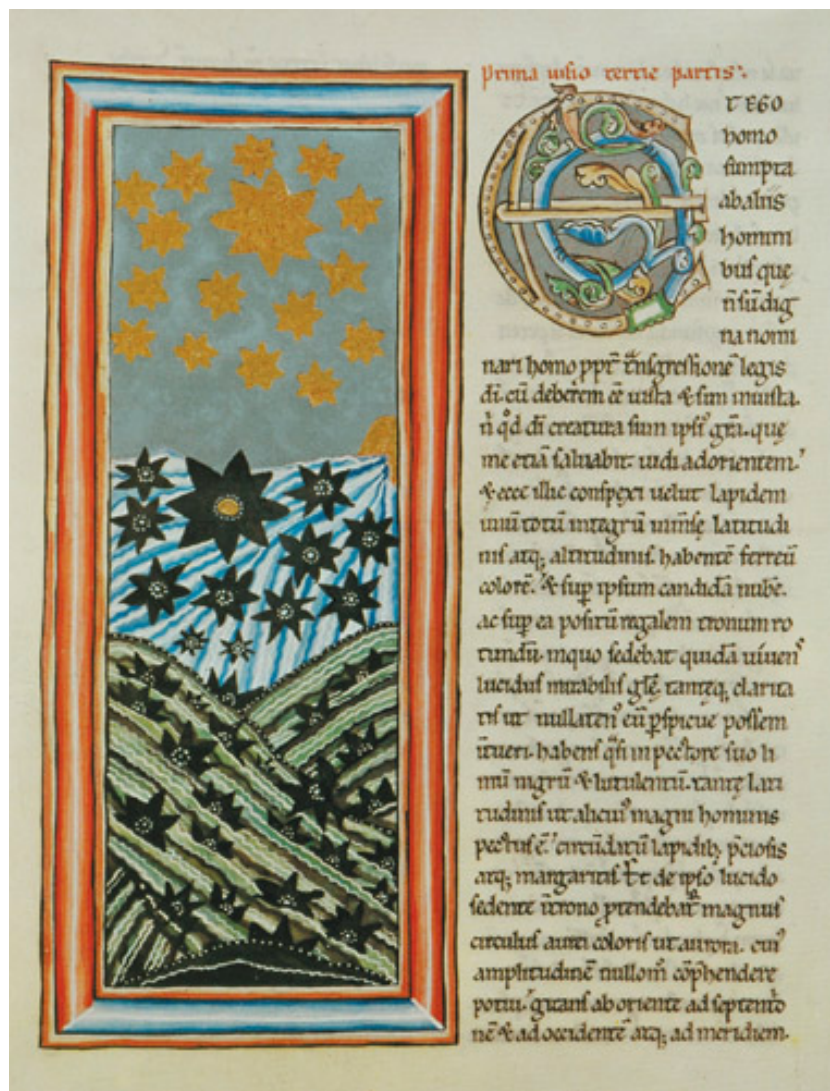 Prima uisio tercie partis.
ET EGO
homo
sumpta
ab aliis
homini
bus quę
n̄ sū dig
na nomi
nari homo ppt̄ t̄nsgressionē legis
di. cū deberem ēē iusta & sim iniusta.
n̄ qd̄ di creatura sum ipsi᷒ gr̄a. quę
me etiā saluabit. uidi ad orientem.
& ecce illic conspexi uelut lapidem
unū totū integrū inm̄sę latitudi
nis atq; altitudinis. habentē ferreū
colorē. & sup ipsum candidā nubē.
ac sup ea positū regalem tronum ro
tundū. in quo sedebat quidā uiuens
lucidus mirabilis glę̄. tantęq; clarita
tis ut nullaten᷒ eū pspicue possem
intueri. habens qͣsi in pectore suo li
mū nigrū & lutulentū. tantę lati
tudinis ut alicui᷒ magni hominis
pectus ē. circūdatū lapidib; p̄ciosis
atq; margaritis. Et de ipso lucido
sedente ī trono ptendebat᷑ magnus
circulus aurei coloris ut aurora. cui᷒
amplitudinē nullom̄ cōp̄hendere
potui. gͥrans ab oriente ad septentⁱo
nē & ad occidentē atq; ad meridiem.